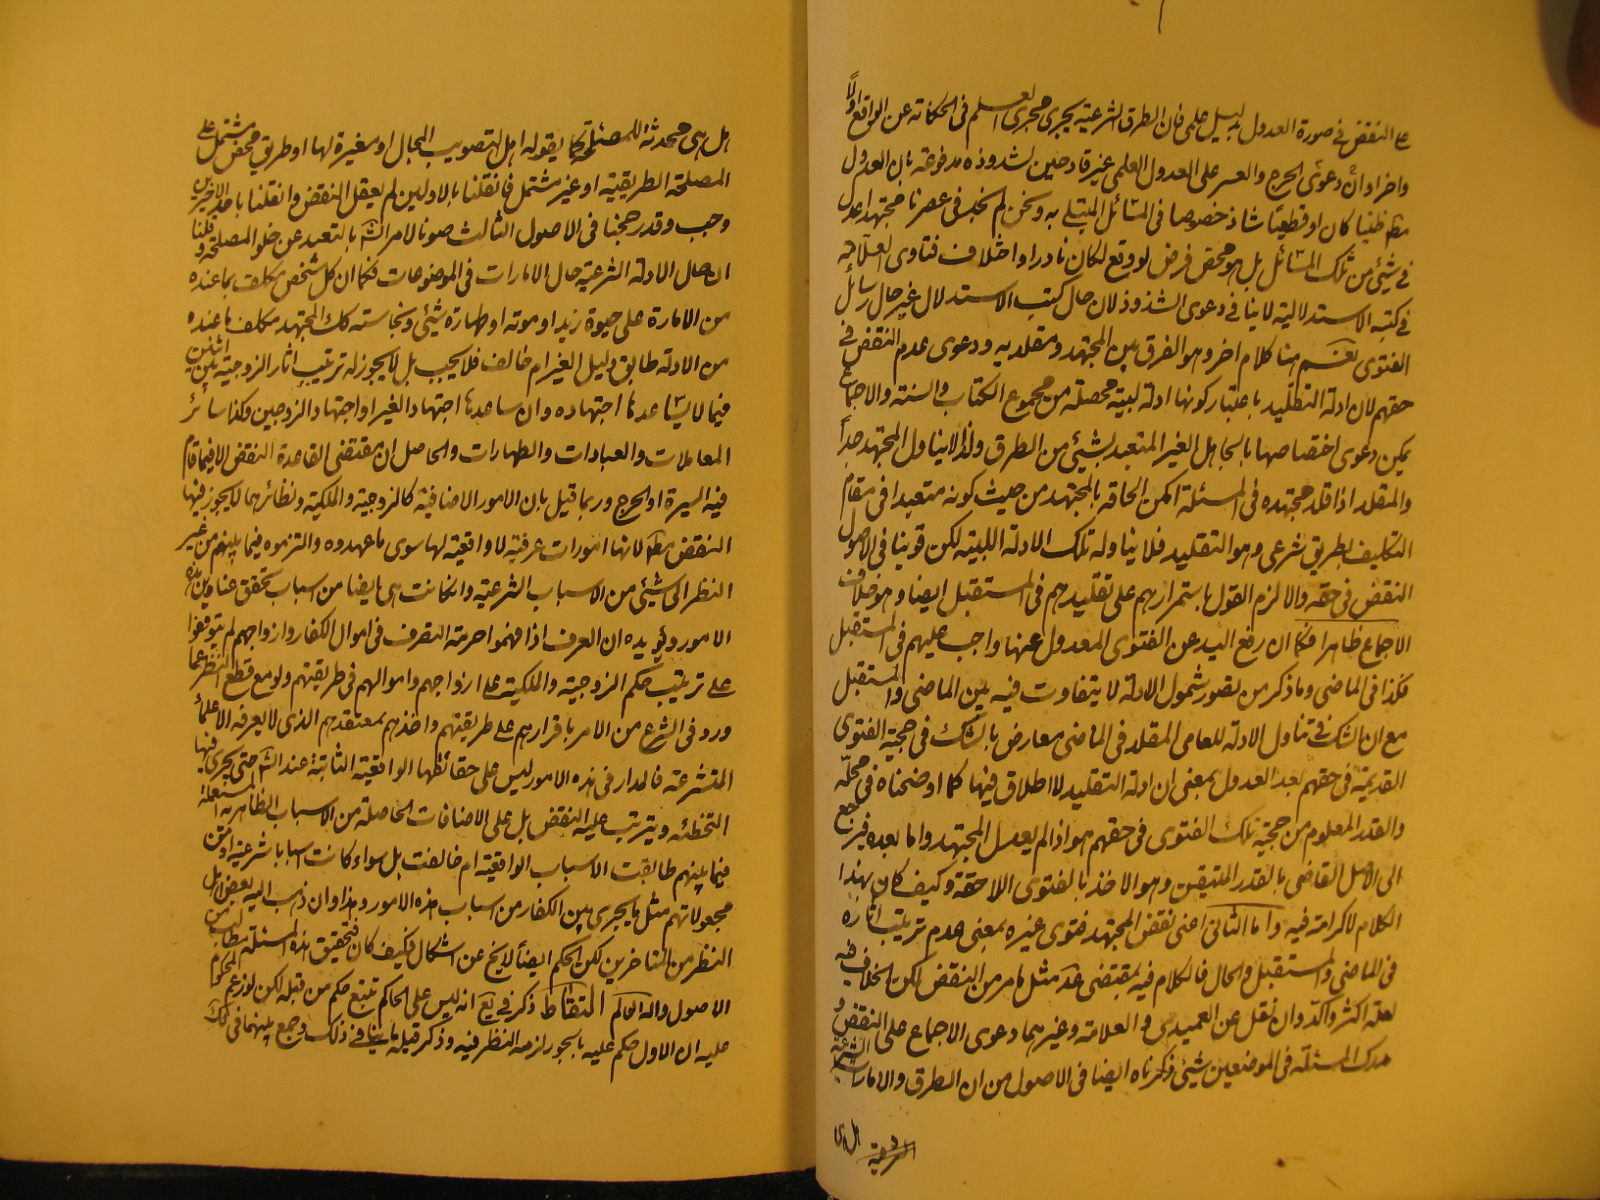 ع النقض فى صورة العدول بدليل علمى فان الطرق الشرعية يجرى مجرى العلم فى الحكاية عن الواقع اولا
واخرا وان دعوى الحرج والعسر على العدول العلمى غير قادحين لشذوذه مدفوعة بان العدول
مط ظنيا كان او قطعيا شاذ خصوصا فى المسائل المبتلى به ونحن لم نجد فى عصرنا مجتهدا عدل
فى شيئ من تلك المسائل بل هو محض فرض لو وقع لكان نادرا واختلاف فتاوى العلامة
فى كتبه الاستدلالية لا ينافى دعوى الشذوذ لان حال كتب الاستدلال غير حال رسائل
الفتوى نعم هنا كلام اخر وهو الفرق بين المجتهد ومقلديه ودعوى عدم النقض فى
حقهم لان ادلة التقليد باعتبار كونها ادلة لبية محصلة من مجموع الكتاب والسنة والاجماع
يمكن دعوى اختصاصها بالجاهل الغير المتعبد بشيئ من الطرق ولذا لا يناول المجتهد جدا
والمقلد اذا قلد مجتهده فى المسئلة امكن الحاقه بالمجتهد من حيث كونه متعبدا فى مقام
التكليف بطريق شرعى وهو التقليد فلا يناوله تلك الادلة اللبية لكن قوينا فى الاصول
النقض فى حقه والا لزم القول باستمرارهم على تقليدهم فى المستقبل ايضا وهو خلاف
الاجماع ظاهرا فكما ان رفع اليد عن الفتوى المعدول عنها واجب عليهم فى المستقبل
فكذا فى الماضى وما ذكر من قصور شمول الادلة لا يتفاوت فيه بين الماضى والمستقبل
مع ان الشك فى تناول الادلة للعامى المقلد فى الماضى معارض بالشك فى حجية الفتوى
القديمة فى حقهم بعد العدول بمعنى ان ادلة التقليد لا اطلاق فيها كما اوضحناه فى محله
والقدر المعلوم من حجية تلك الفتوى فى حقهم هو اذا لم يعدل المجتهد واما بعده فيرجع
الى الاصل القاضى بالقدر المتيقن وهو الاخذ بالفتوى اللاحقة وكيف كان بهذا
الكلام لا كرامة فيه واما الثانى اعنى نقض المجتهد فتوى غيره بمعنى عدم ترتيب اثاره
فى الماضى والمستقبل والحال فالكلام فيه بمقتضى مثل ما مر من النقض لكن الخلاف فيه
لعله اكثر واكد وان نقل عن العميدى والعلامة وغيرهما دعوى الاجماع على النقض و
مدرك المسئلة فى الموضعين شيئ ذكرناه ايضا فى الاصول من ان الطرق والامارات الشرعية
هل هى
هل هى محدثة للمصلحة كما يقوله اهل التصويب المحال او مغيرة لها او طريق محض مشتمل على
المصلحة الطريقية او غير مشتمل فان قلنا بالاولين لم يعقل النقض وان قلنا باحد الاخيرين
وجب وقد رجحنا فى الاصول الثالث صونا لامر الش بالتعبد عن خلو المصلحة وقلنا
ان حال الادلة الشرعية حال الامارات فى الموضوعات فكما ان كل شخص مكلف بما عنده
من الامارة على حيوة زيد او موته او طهارة شيئ ونجاسته كك المجتهد مكلف بما عنده
من الادلة طابق دليل الغير ام خالف فلا يجب بل لا يجوز له ترتيب اثار الزوجية بين اثنين
فيما لا يساعدها اجتهاده وان ساعدها اجتهاد الغير او اجتهاد الزوجين وكذا سائر
المعاملات والعبادات والطهارات والحاصل ان مقتضى القاعدة النقض الا فيما قام
فيه السيرة او الحرج وربما قيل بان الامور الاضافية كالزوجية والملكية ونظائرهما لا يجوز فيها
النقض مط لانها امورات عرفية لا واقعية لها سوى ما عهدوه والتزموه فيما بينهم من غير
النظر الى شيئ من الاسباب الشرعية وان كانت هى ايضا من اسباب تحقق عناوين هذه
الامور ويؤيده ان العرف اذا فهموا حرمة التصرف فى اموال الكفار وازواجهم لم يتوقفوا
على ترتيب حكم الزوجية والملكية على ازواجهم واموالهم فى طريقتهم ولو مع قطع النظر عما
ورد فى الشرع من الامر باقرارهم على طريقتهم واخذهم بمعتقدهم الذى لا يعرفه الا علماء
المتشرعة فالمدار فى هذه الامور ليس على حقائقها الواقعية الثابتة عند الش حتى يجرى فيها
التخطئة ويترتب عليه النقض بل على الاضافات الحاصلة من الاسباب الظاهرية المستعملة
فيما بينهم طابقت الاسباب الواقعية ام خالفت بل سواء كانت اسبابا شرعية او من
مجعولاتهم مثل ما يجرى بين الكفار من اسباب هذه الامور وهذا وان ذهب اليه بعض اهل
النظر من المتاخرين لكن الحكم ايضا لا يخ عن اشكال فكيف كان فتحقيق هذه المسئلة يطلب من
الاصول والله العالم التقاط ذكر فى يع انه ليس على الحاكم تتبع حكم من قبله لكن لو زعم المحكوم
عليه ان الاول حكم عليه بالجور لزمه النظر فيه وذكر قبله ما ينافى ذلك وجمع بينهما فى لك